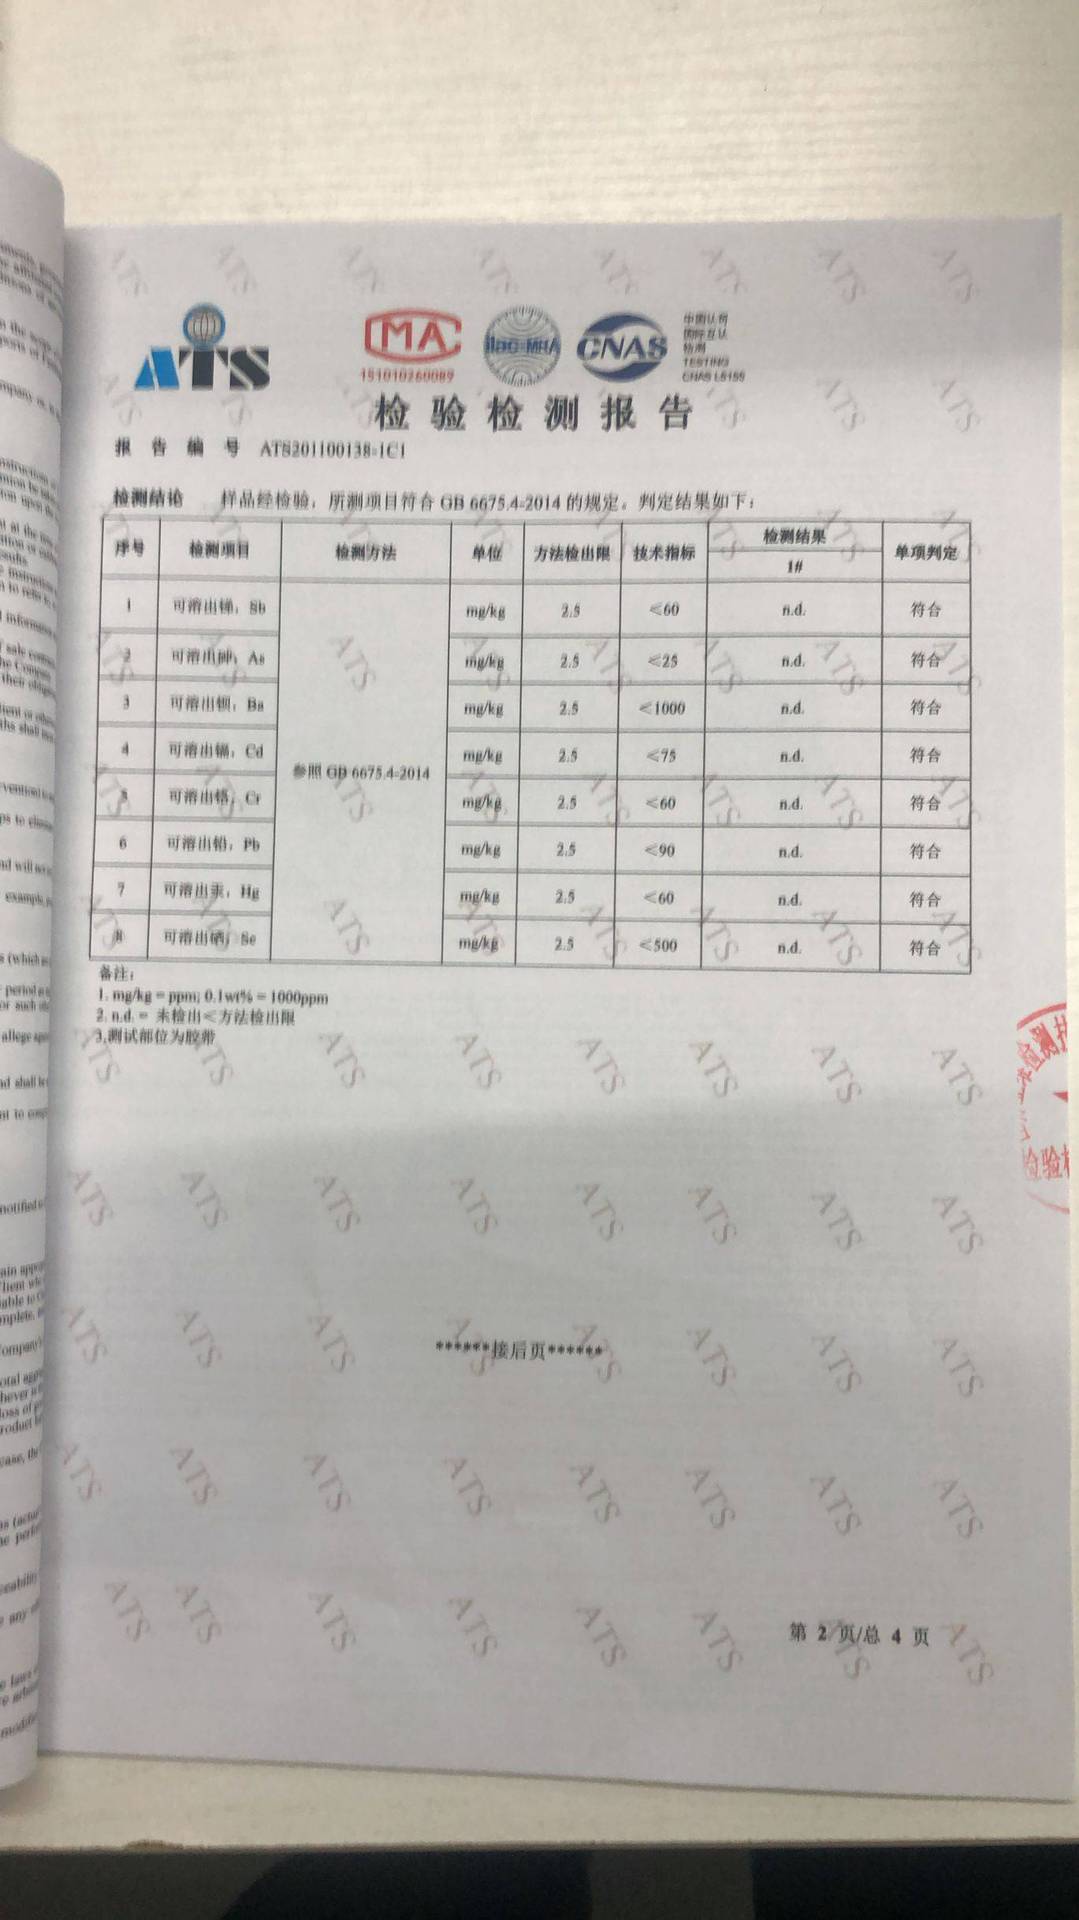 ATS
MA
151010260089
ilac-MRA
CNAS
中国认可
国际互认
检测
TESTING
CNAS L5155
检验检测报告
报告编号 ATS201100138-1C1
检测结论 样品经检验，所测项目符合 GB 6675.4-2014 的规定。判定结果如下：
序号 检测项目 检测方法 单位 方法检出限 技术指标 检测结果 单项判定
1#
1 可溶出锑，Sb mg/kg 2.5 ≤60 n.d. 符合
2 可溶出砷，As mg/kg 2.5 ≤25 n.d. 符合
3 可溶出钡，Ba mg/kg 2.5 ≤1000 n.d. 符合
4 可溶出镉，Cd mg/kg 2.5 ≤75 n.d. 符合
参照 GB 6675.4-2014
5 可溶出铬，Cr mg/kg 2.5 ≤60 n.d. 符合
6 可溶出铅，Pb mg/kg 2.5 ≤90 n.d. 符合
7 可溶出汞，Hg mg/kg 2.5 ≤60 n.d. 符合
8 可溶出硒，Se mg/kg 2.5 ≤500 n.d. 符合
备注：
1. mg/kg = ppm; 0.1wt% = 1000ppm
2. n.d. = 未检出＜方法检出限
3.测试部位为胶带
******接后页******
第 2 页/总 4 页